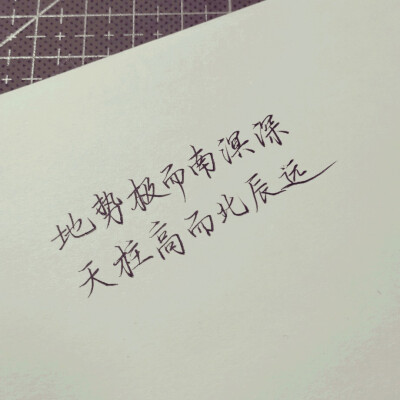 地势极而南溟深
天柱高而北辰远